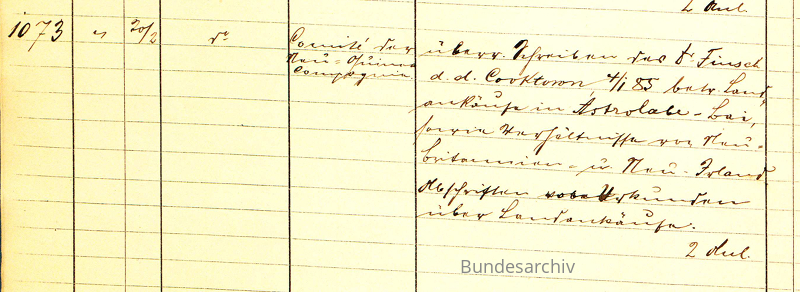 2 Anl.
1073 " 20/2 do Comité der
Neu-Guinea
Compagnie
überr. Schreiben des Dr Finsch
d. d. Cooktown, 4/1 85 betr. Land-
ankäufe in Astrolabe-Bai,
sowie Verhältnisse von Neu-
britannien- u Neu-Irland
Abschriften Urkunden
über Landankäufe.
2 Anl.
Bundesarchiv